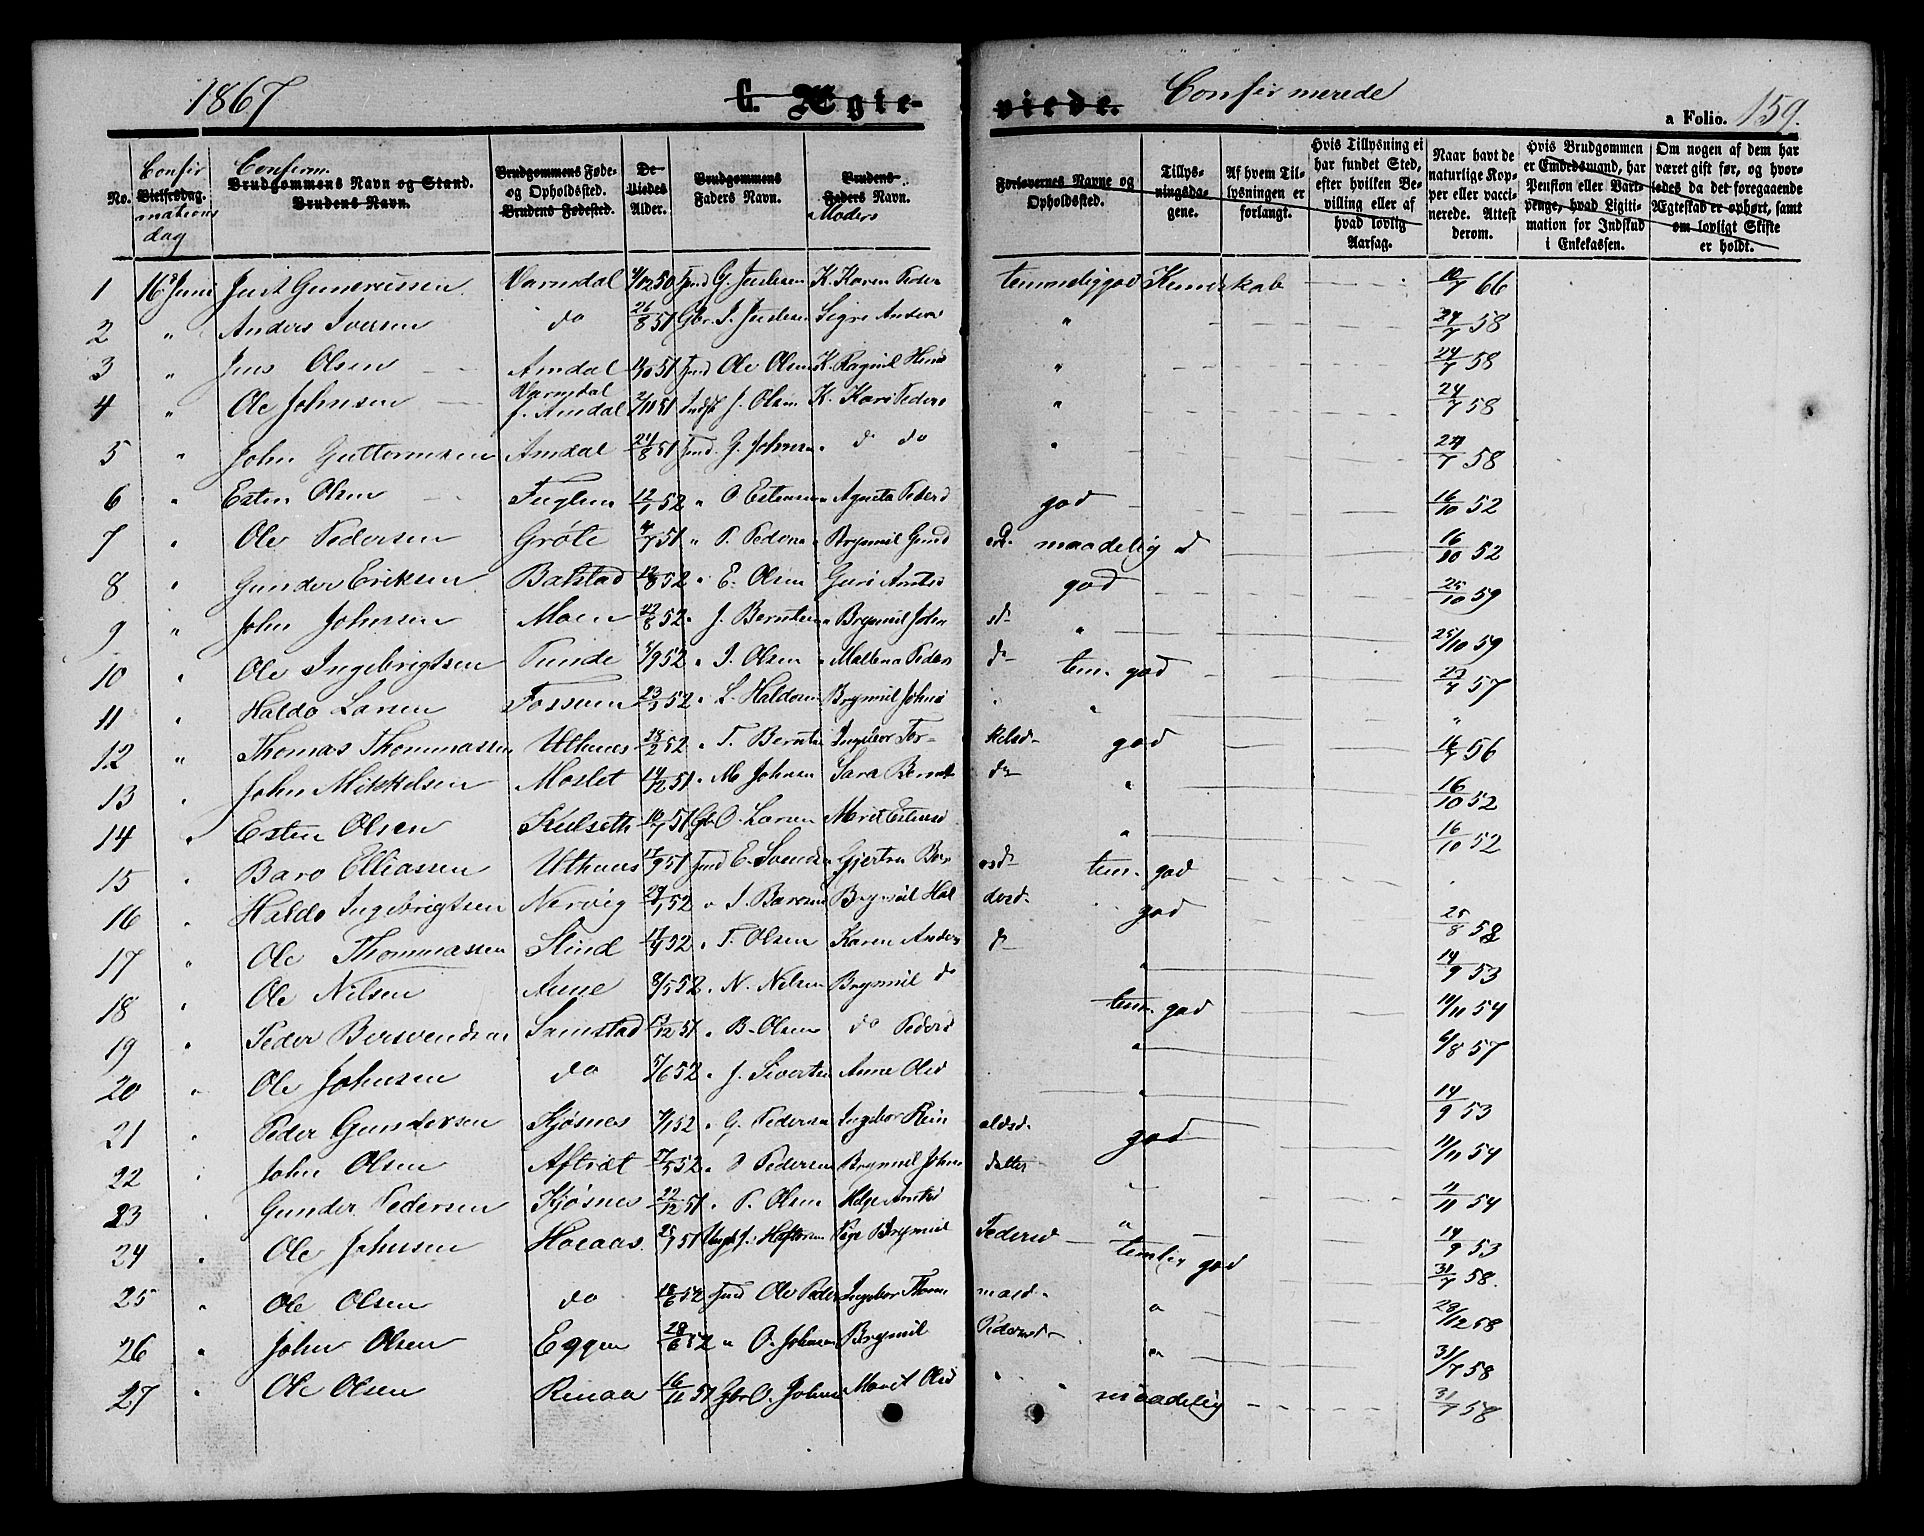 1867
G. Ægte-
viede.
Confirmerede
a Folio. 159.
No.
Confirmations dag
Vielsesdag.
Confirm.
Brudgommens Navn og Stand.
Brudens Navn.
Brudgommens Føde- og Opholdssted.
Brudens Fødested.
De Viedes Alder.
Brudgommens Faders Navn.
Brudens Faders Navn.
Moders
Forlovernes Navne og Opholdssted.
Tillysningsdagene.
Af hvem Tillysningen er forlangt.
Hvis Tillysning ei har fundet Sted, efter hvilken Bevilling eller af hvad lovlig Aarsag.
Naar havt de naturlige Kopper eller vaccinerede. Attest derom.
Hvis Brudgommen er Embedsmand, har Pension eller Vartpenge, hvad Ligitimation for Indskud i Enkekassen.
Om nogen af dem har været gift før, og hvorledes da det foregaaende Ægteskab er ophørt, samt om lovligt Skifte er holdt.
1 16 Juni Just Gunerussen Varmdal 50 G. Justesen K. Karen Peders temmelig god Kundskab 10/7 66
2 " Anders Iversen do 26/8 51 Gbr I. Justesen Sigre Anders " 24/7 58
3 " Jens Olsen Amdal 51 Ole Olsen K. Ragnil " 24/7 58
4 " Ole Johnsen Varmdal f. Amdal 2/11 51 J. Olsen K. Kari Peders " 24/7 58
5 " John Guttormsen Amdal 24/8 51 G. Johnsen do do " 24/7 58
6 " Esten Olsen Fuglem 12/1 52 " O Estensen Agneta Peders god 16/10 52
7 " Ole Pedersen Grøte 4/7 51 " P. Peders Brynnil Gund ersd. maadelig 16/10 52
8 " Gunder Eriksen Balstad 52 " E. Olsen Guri god 25/10 59
9 " John Johnsen Moen 22/8 52 " J. Berntsen Brynnil John sd " 25/10 59
10 " Ole Ingebrigtsen Tunde 5/9 52 " I. Olsen Mallena Peders d tem. god 57
11 " Haldo Larsen Fossum 23/3 52 " L. Haldorsen Brynnil Johns " "
12 " Thomas Thommassen Uthuus 28/2 52 " T. Berntsen Ingebor Tor- kelsd. god 56
13 " John Mikkelsen Moslet 14/12 51 " M Johnsen Sara Bernt d " 16/10 52
14 " Esten Olsen Kulseth 10/7 51 Gbr O. Larsen Marit Estensd " 16/10 52
15 " Baro Elliassen Uthuus 17/9 51 E. Svends Gjertru Bar osd tem. god "
16 " Haldo Ingebrigtsen Nervig 29/1 52 " I. Barosen Brynnil Hal dosd. god 25/8 58
17 " Ole Thommassen Stind 52 " T. Olsen Karen Anders d " 14/9 53
18 " Ole Nilsen Aune 8/5 52 " N. Nilsen Brynnil do tem. god 14/11 54
19 " Peder Bersvendsen Samstad 51 " B. Olsen do Pedersd " 6/8 57
20 " Ole Johnsen do 5/6 52 " J. Sivertsen Anne Olsd " 14/9 53
21 " Peder Gundersen Kjøsnes 52 " G. Pedersen Ingebor Rein aldsd. god 11/11 54
22 John Olsen Aftrødt 27/5 52 " O Pedersen Brynnil Johns datter " 11/11 54
23 " Gunder Pedersen Kjøsnes 22/12 51 " P. Olsen " 14/9 53
24 " Ole Johnsen Hoeaas 51 Pige Brynnil Pedersd temlig god 31/7 58
25 " Ole Olsen do 18/6 52 Ole Peders Ingebor Thom masd. " 28/12 58
26 " John Olsen Eggen 29/6 52 " O. Johnsen Brynnil Pedersd. " 31/7 58
27 " Ole Olsen Renaa 16/11 51 Gbr O. Johns Marit Olsd " maadelig 31/7 58